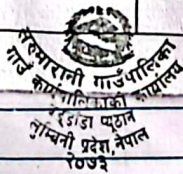 सरुमारानी गाउँपालिका
गाउँ कार्यपालिकाको कार्यालय
प्यूठान
लुम्बिनी प्रदेश, नेपाल
२०७३